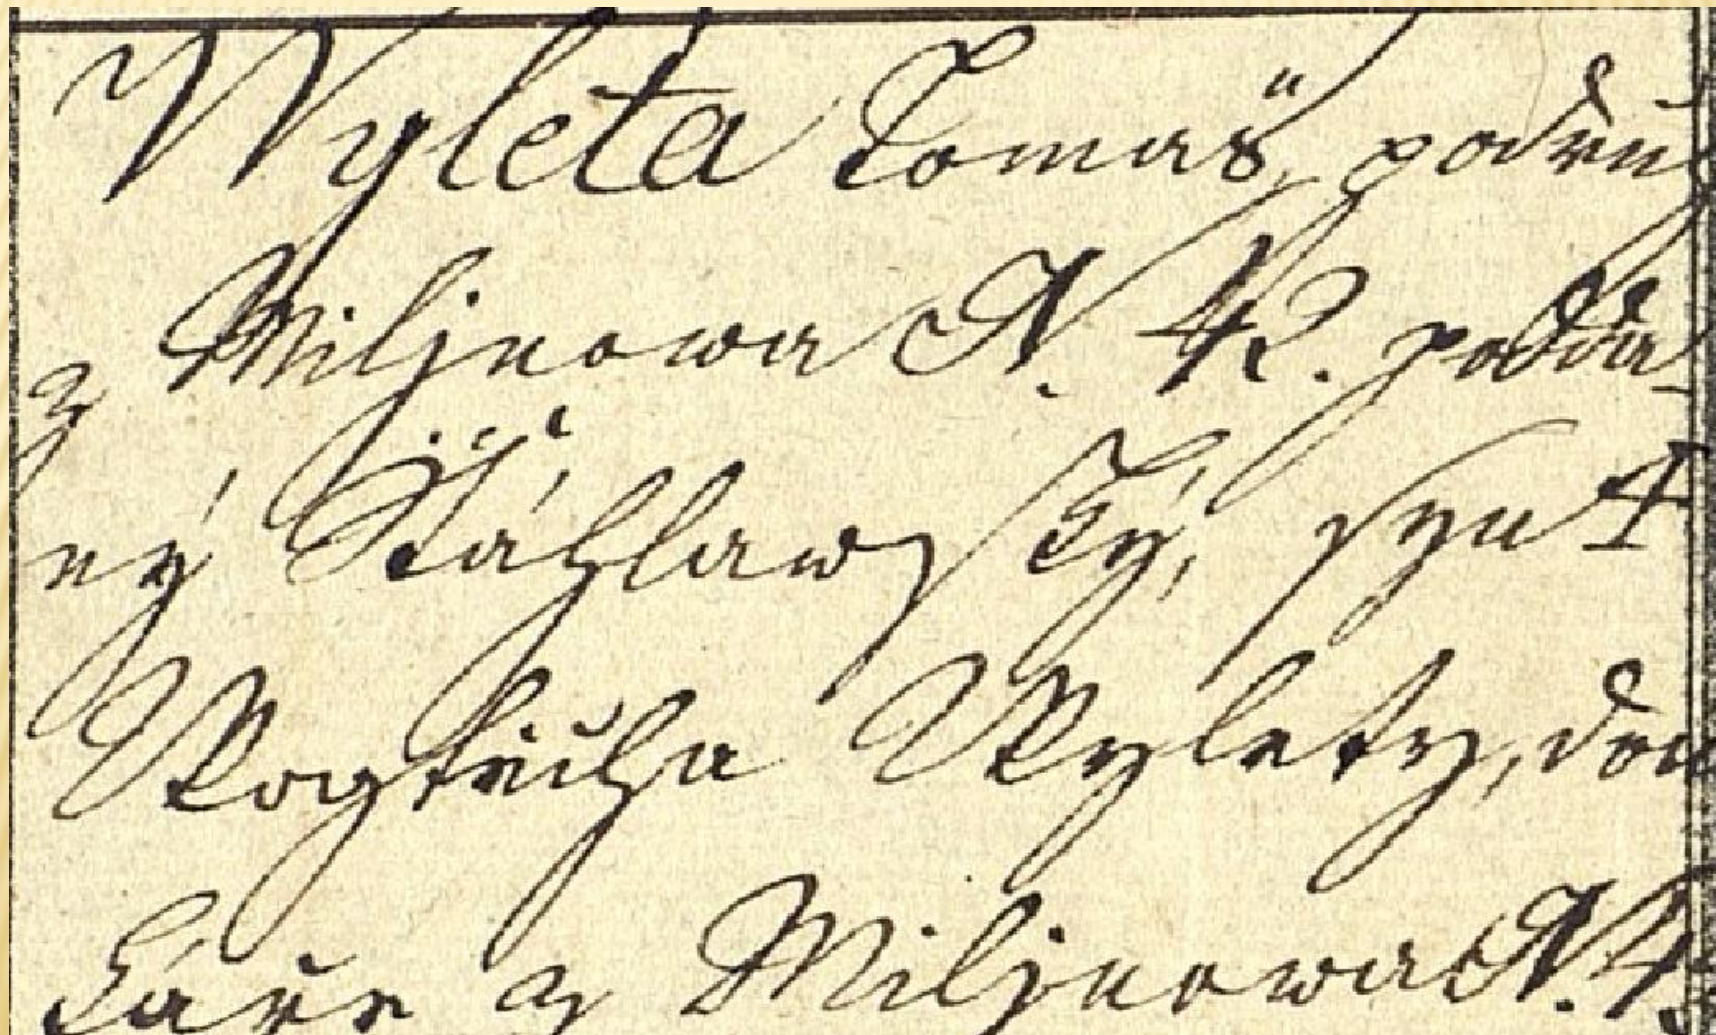 Wyleta Tomáš, podruh
z Miljnowa N. 42. podda-
ný Štáhlawský, syn †
Wogtěcha Wylety, dom
káře z Miljnowa N. 4